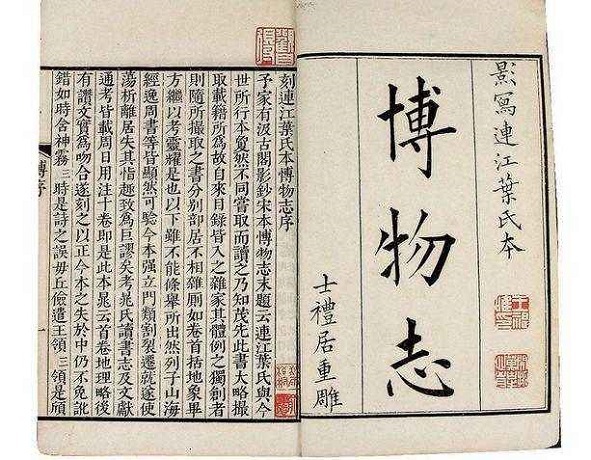 影寫連江葉氏本
博物志
士禮居重雕
刻連江葉氏本博物志序
予家有汲古閣影鈔宋本博物志末題云連江葉氏與今
世所行本敻然不同嘗取而讀之乃知茂先此書大略撮
取載籍所爲故自來目錄皆入之雜家其體例之獨剏者
則隨所撮取之書分別部居不相雜廁如卷首括地象畢
方繼以考靈耀是也以下雖不能條舉所出然列子山海
經逸周書等皆顯然可驗今本强立門類割裂遷就遂使
蕩析離居失其指趣致爲巨謬矣考晁氏讀書志及文獻
通考皆載周日用注十卷即是此本晁云首卷地理略後
有讚文實爲吻合遂刻之以正今本之失於中仍不免訛
錯如時含神霧三時是詩之誤毋丘儉遣王領三領是頎
博序
一